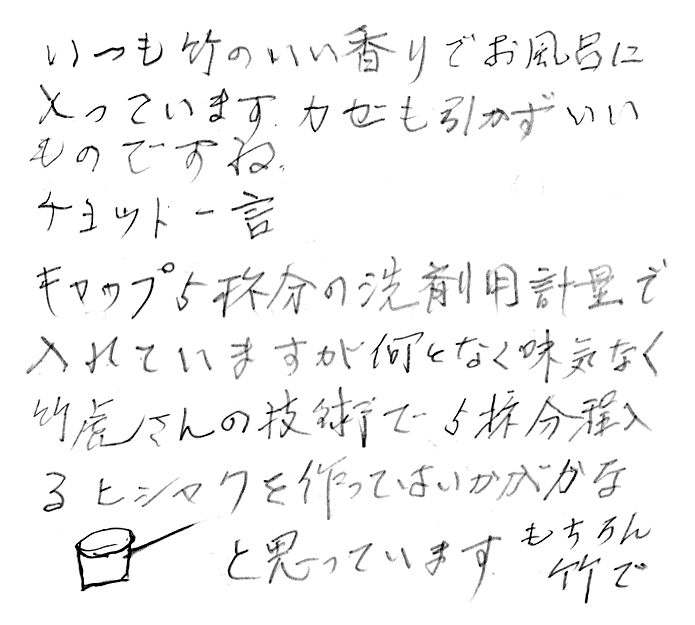 いつも竹のいい香りでお風呂に
入っています。カゼも引かずいい
ものですね。
チョット一言
キャップ5杯分の洗剤用計量で
入れていますが何となく味気なく
竹虎さんの技術で5杯分程入
るヒシャクを作ってはいかがかな
と思っています もちろん
竹で